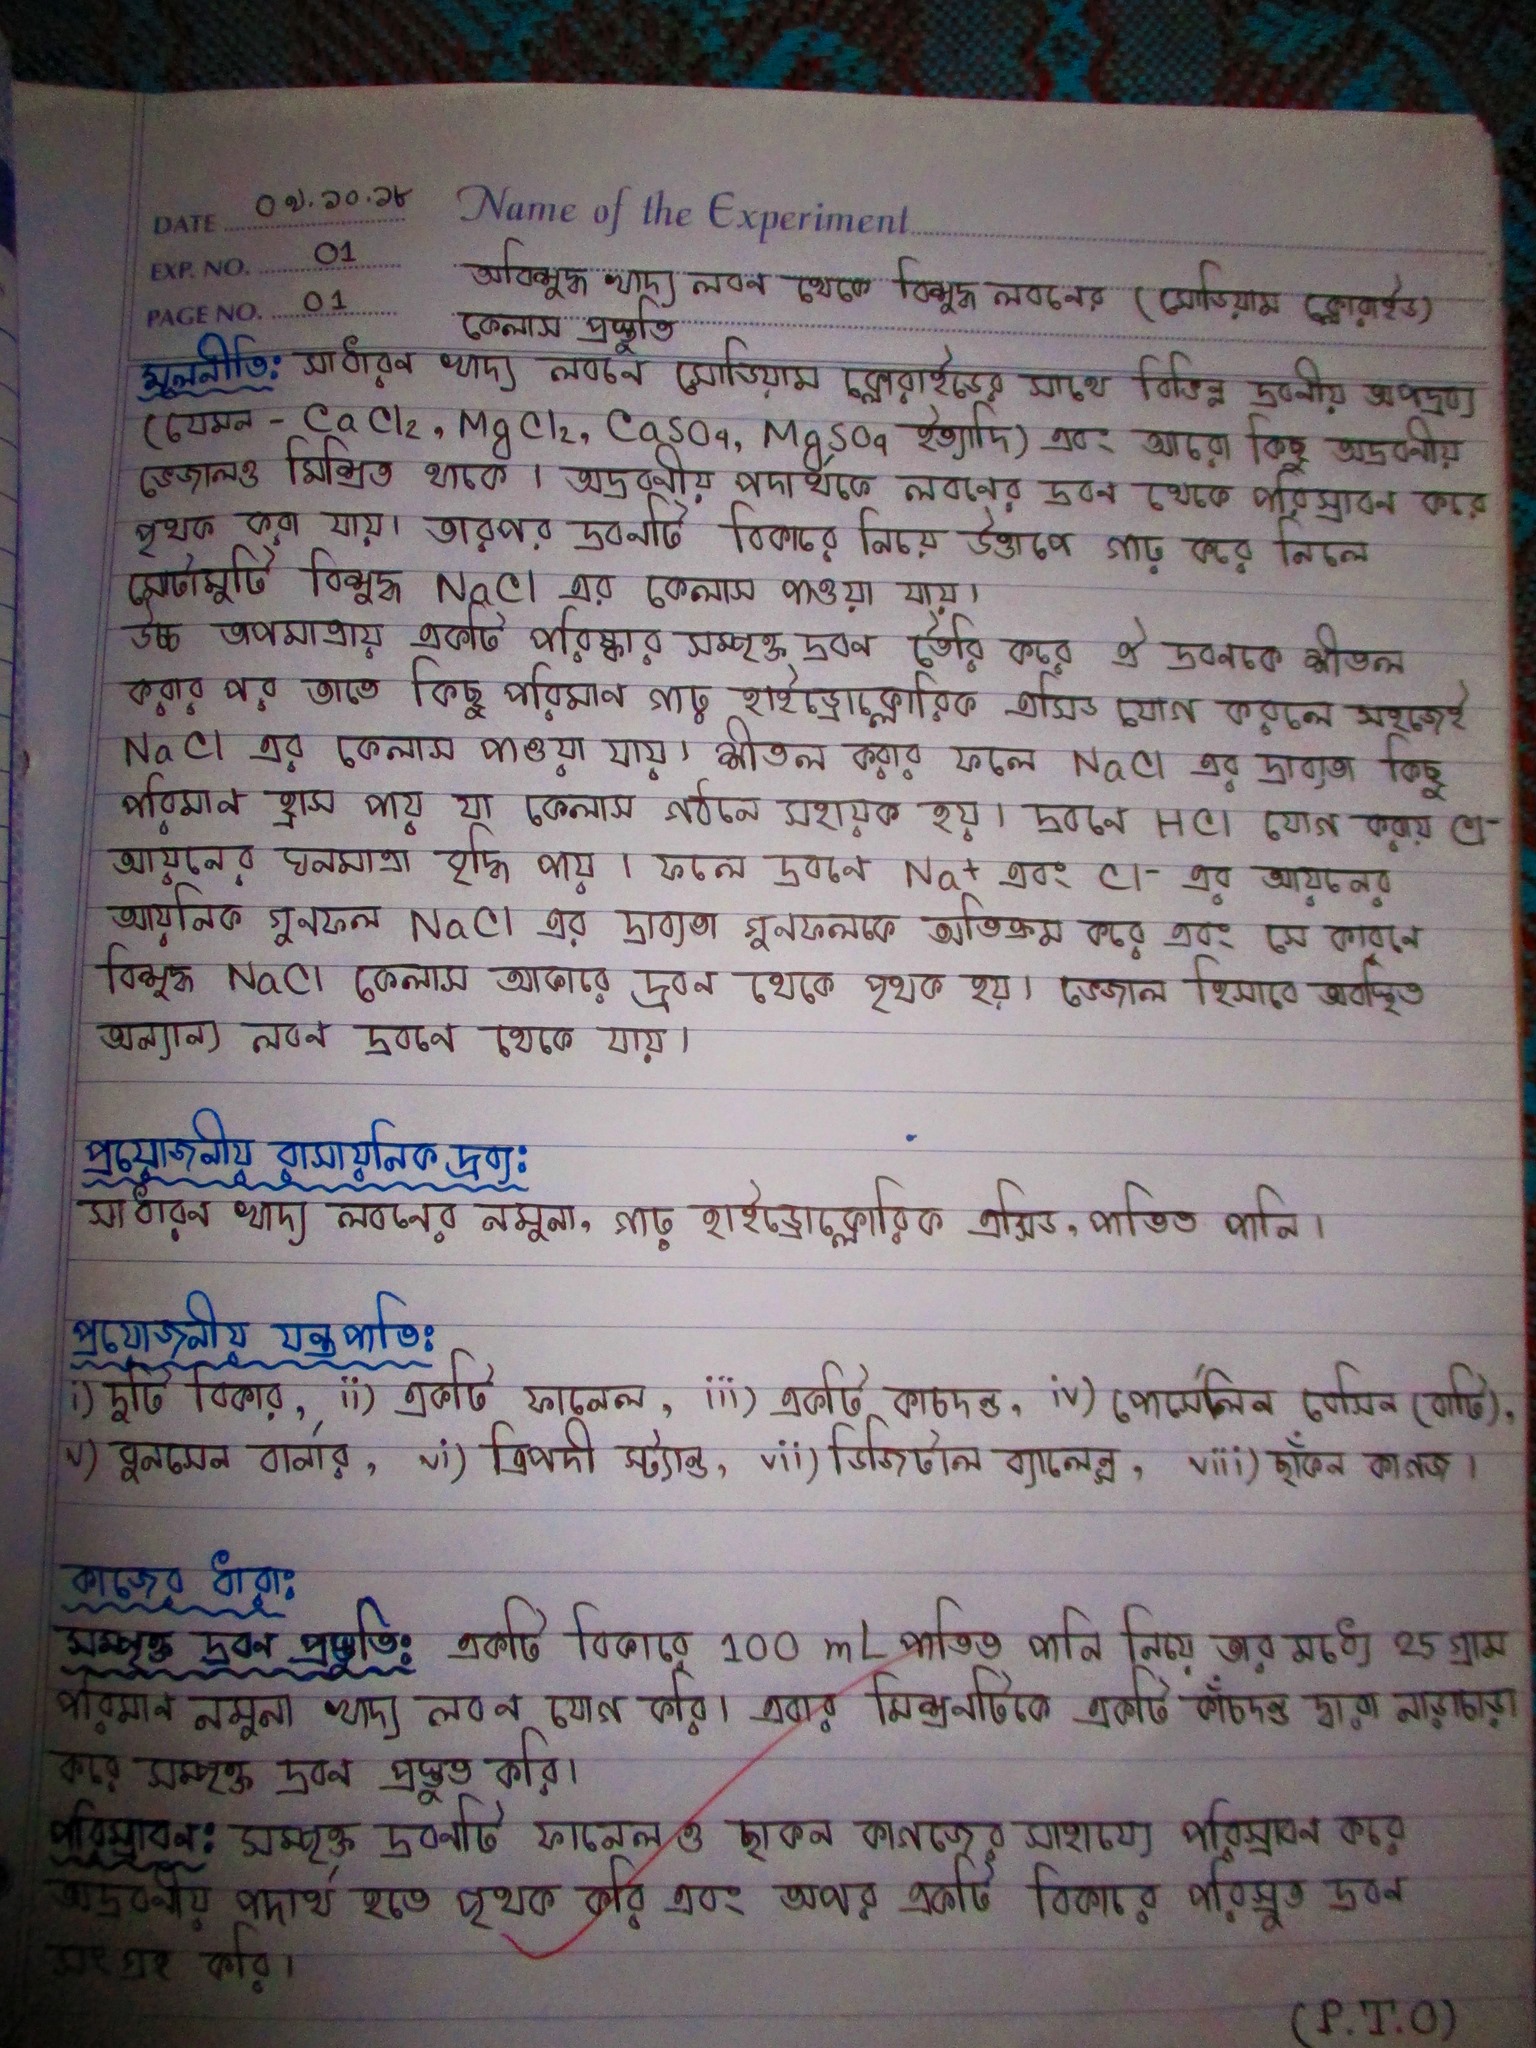 DATE ০৭.১০.১৮ Name of the Experiment
EXP. NO. 01
অবিশুদ্ধ খাদ্য লবন থেকে বিশুদ্ধ লবনের (সোডিয়াম ক্লোরাইড)
PAGE NO. 01
কেলাস প্রস্তুতি
মূলনীতি: সাধারন খাদ্য লবনে সোডিয়াম ক্লোরাইডের সাথে বিভিন্ন দ্রবনীয় অপদ্রব্য
(যেমন - CaCl₂, MgCl₂, CaSO₄, MgSO₄ ইত্যাদি) এবং আরো কিছু অদ্রবনীয়
ভেজালও মিশ্রিত থাকে। অদ্রবনীয় পদার্থকে লবনের দ্রবন থেকে পরিস্রাবন করে
পৃথক করা যায়। তারপর দ্রবনটি বিকারে নিয়ে উত্তাপে গাঢ় করে নিলে
মোটামুটি বিশুদ্ধ NaCl এর কেলাস পাওয়া যায়।
উচ্চ তাপমাত্রায় একটি পরিষ্কার সম্পৃক্ত দ্রবন তৈরি করে ঐ দ্রবনকে শীতল
করার পর তাতে কিছু পরিমান গাঢ় হাইড্রোক্লোরিক এসিড যোগ করলে সহজেই
NaCl এর কেলাস পাওয়া যায়। শীতল করার ফলে NaCl এর দ্রাব্যতা কিছু
পরিমান হ্রাস পায় যা কেলাস গঠনে সহায়ক হয়। দ্রবনে HCl যোগ করায় Cl⁻
আয়নের ঘনমাত্রা বৃদ্ধি পায়। ফলে দ্রবনে Na⁺ এবং Cl⁻ এর আয়নের
আয়নিক গুনফল NaCl এর দ্রাব্যতা গুনফলকে অতিক্রম করে এবং সে কারনে
বিশুদ্ধ NaCl কেলাস আকারে দ্রবন থেকে পৃথক হয়। ভেজাল হিসাবে অবস্থিত
অন্যান্য লবন দ্রবনে থেকে যায়।
প্রয়োজনীয় রাসায়নিক দ্রব্য:
সাধারন খাদ্য লবনের নমুনা, গাঢ় হাইড্রোক্লোরিক এসিড, পাতিত পানি।
প্রয়োজনীয় যন্ত্রপাতি:
i) দুটি বিকার, ii) একটি ফানেল, iii) একটি কাচদন্ড, iv) পোর্সেলিন বেসিন (বাটি),
v) বুনসেন বার্নার, vi) ত্রিপদী স্ট্যান্ড, vii) ডিজিটাল ব্যালেন্স, viii) ছাঁকন কাগজ।
কাজের ধারা:
সম্পৃক্ত দ্রবন প্রস্তুতি: একটি বিকারে 100 mL পাতিত পানি নিয়ে তার মধ্যে 25 গ্রাম
পরিমান নমুনা খাদ্য লবন যোগ করি। এবার মিশ্রনটিকে একটি কাঁচদন্ড দ্বারা নাড়াচাড়া
করে সম্পৃক্ত দ্রবন প্রস্তুত করি।
পরিস্রাবন: সম্পৃক্ত দ্রবনটি ফানেল ও ছাকন কাগজের সাহায্যে পরিস্রাবন করে
অদ্রবনীয় পদার্থ হতে পৃথক করি এবং অপর একটি বিকারে পরিস্রুত দ্রবন
সংগ্রহ করি।
(P.T.O)